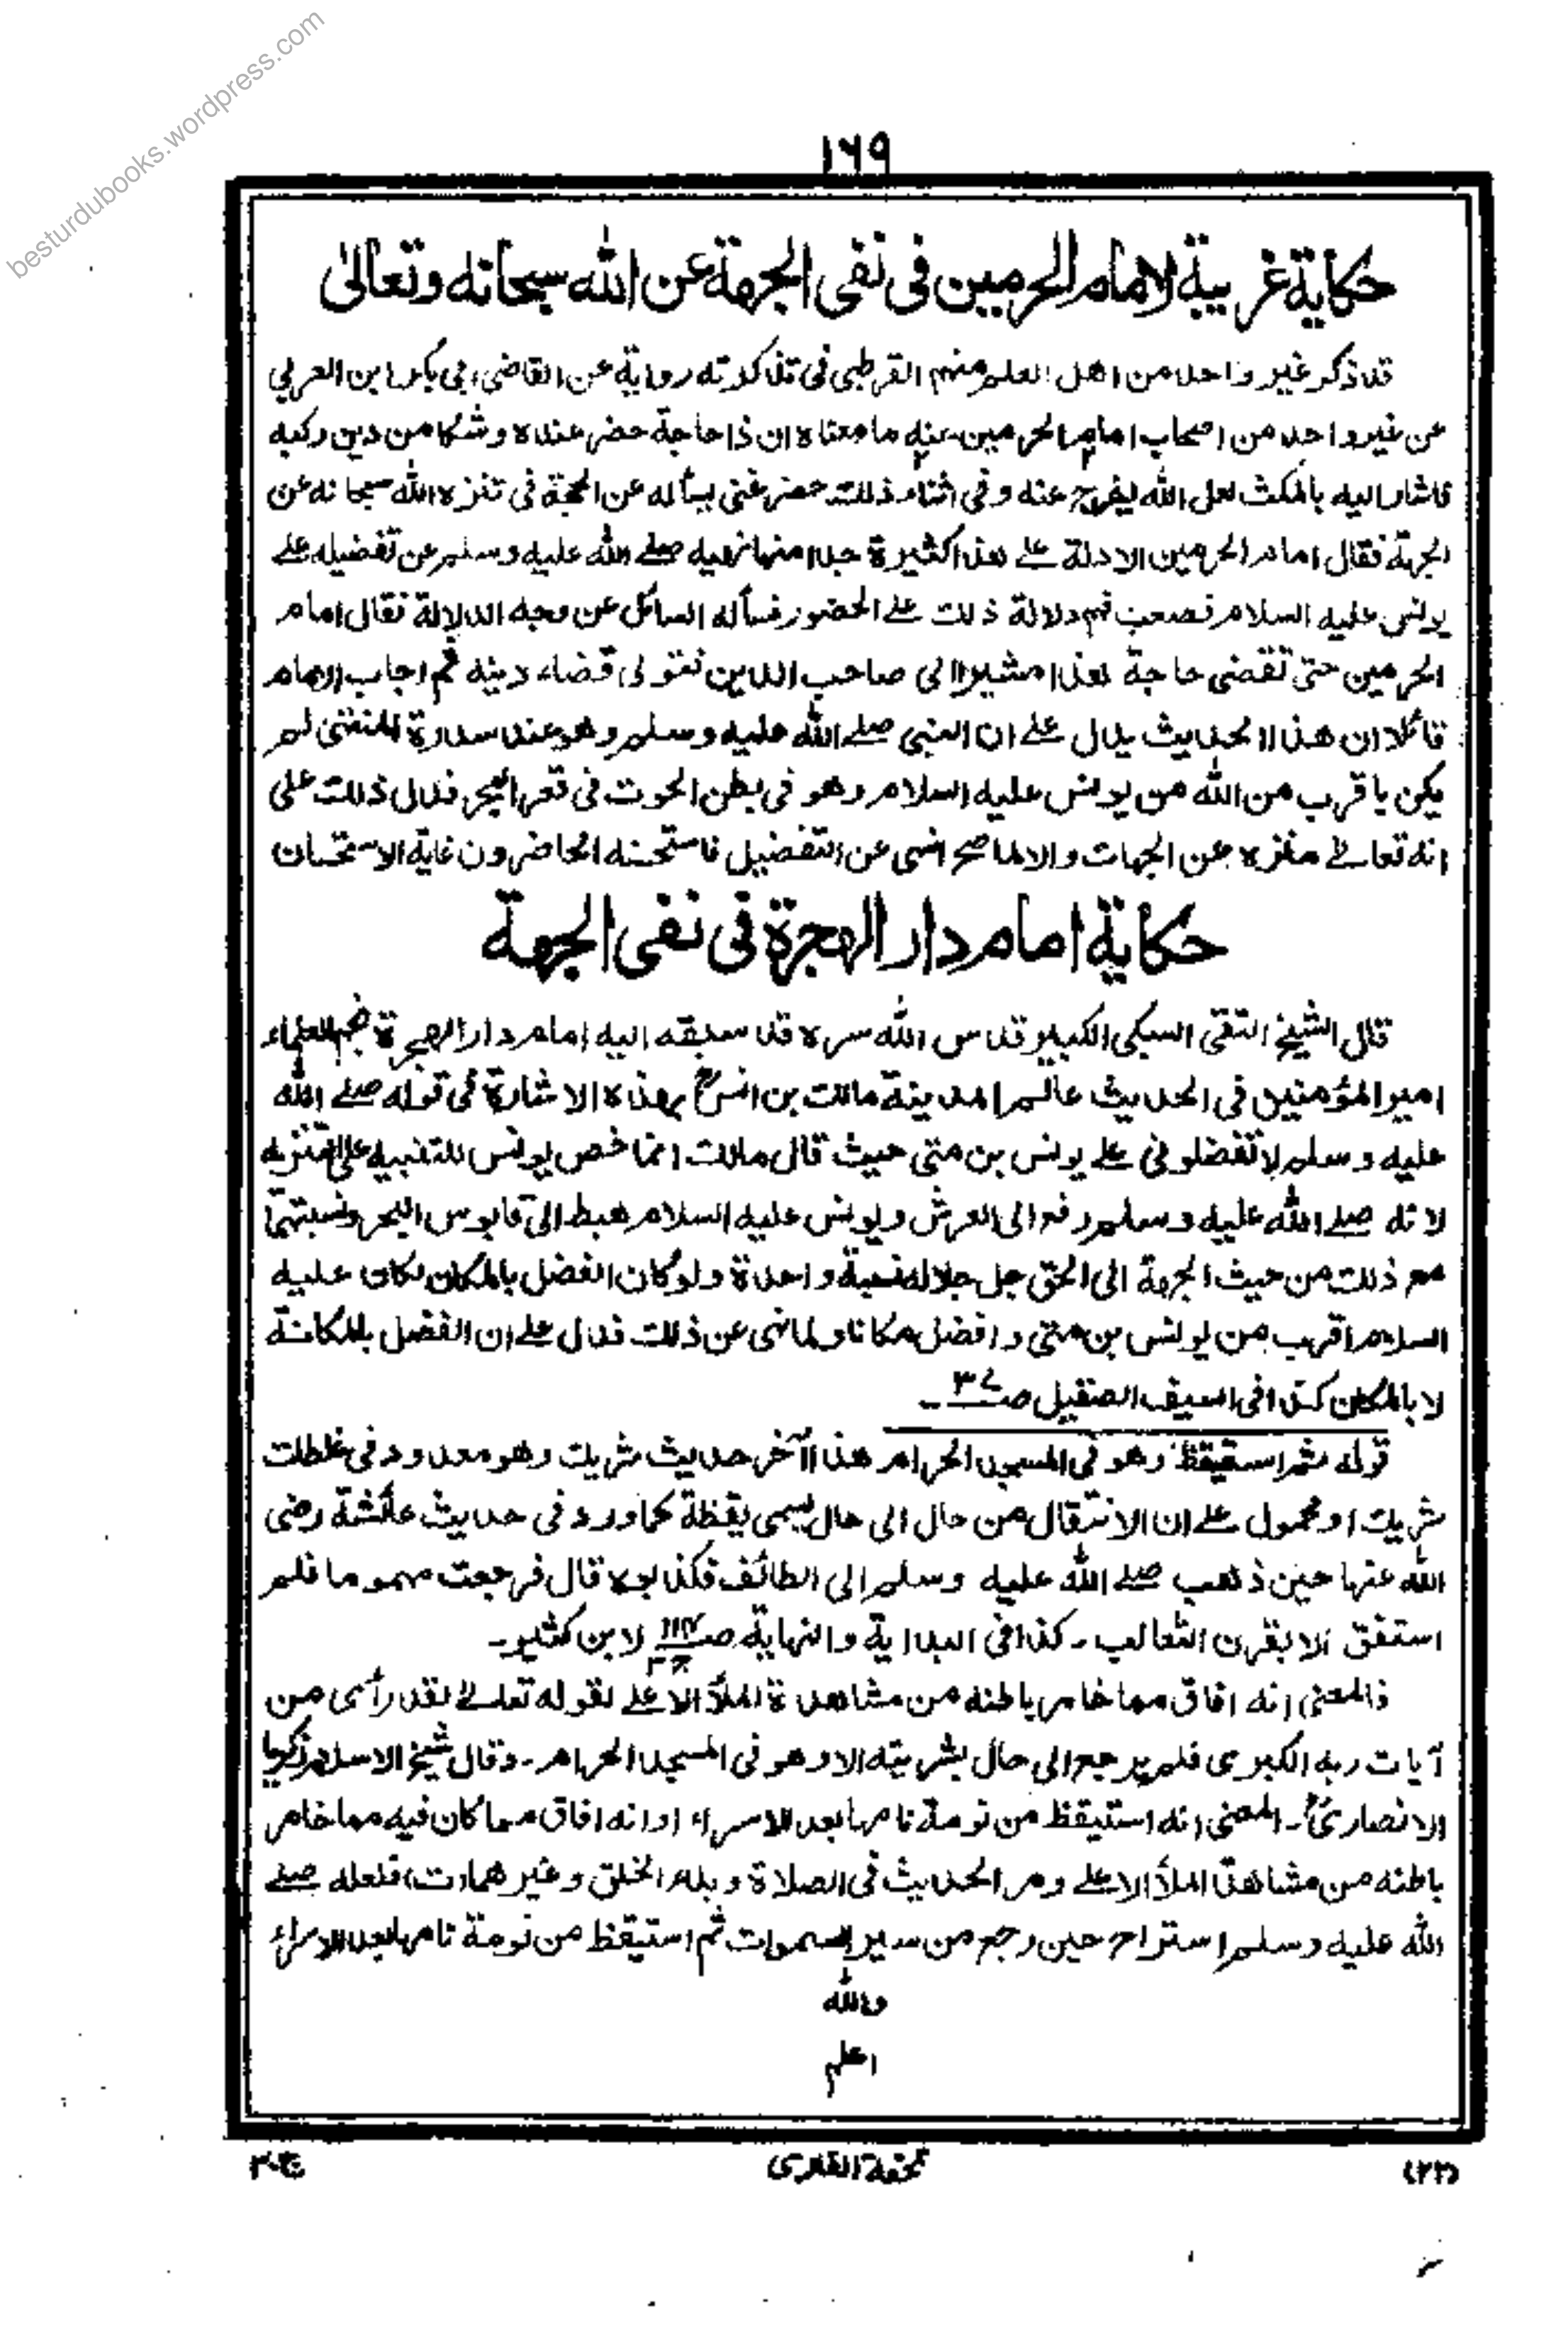 besturdubooks.wordpress.com
١٦٩
حكاية غريبة لامام الحرمين في نفى الجهة عن الله سبحانه وتعالىٰ
قد ذكر غير واحد من اهل العلم منهم القرطبى فى تذكرته رواية عن القاضى ابى بكر ابن العربي
عن غير واحد من اصحاب امام الحرمين عنه ما معناه ان ذا حاجة حضر عنده وشكا من دين ركبه
فاشار اليه بالمكث لعل الله ليفرج عنه وفى اثناء ذلك حضر غنى يسأله عن الحجة فى تنزه الله سبحانه عن
الجهة فقال امام الحرمين الادلة على هذا كثيرة جدا منها نهيه صلى الله عليه وسلم عن تفضيله على
يونس عليه السلام فصعب فهم دلالة ذلك على الحضور فسأله السائل عن وجه الدلالة فقال امام
الحرمين حتى تقضى حاجة هذا مشيرا الى صاحب الدين فتولى قضاء دينه ثم اجاب الامام
قائلا ان هذا الحديث يدل على ان النبى صلى الله عليه وسلم وهو عند سدرة المنتهى لم
يكن باقرب من الله من يونس عليه السلام وهو فى بطن الحوت فى قعر البحر فدل ذلك على
انه تعالى منزه عن الجهات والا لما صح النهى عن التفضيل فاستحسنه الحاضرون غاية الاستحسان
حكاية امام دار الهجرة فى نفى الجهة
قال الشيخ التقى السبكى الكبير قدس الله سره قد سبقه اليه امام دار الهجرة نجم العلماء
امير المؤمنين فى الحديث عالم المدينة مالك بن انسؒ بهذه الاشارة فى قوله صلى الله
عليه وسلم لا تفضلونى على يونس بن متى حيث قال مالك انما خص يونس للتنبيه على التنزيه
لانه صلى الله عليه وسلم رفع الى العرش ويونس عليه السلام هبط الى قابوس البحر ونسبتهما
مع ذلك من حيث الجهة الى الحق جل جلاله نسبة واحدة ولو كان الفضل بالمكان لكان عليه
السلام اقرب من يونس بن متى وافضل مكانا ولما نهى عن ذلك فدل على ان الفضل بالمكانة
لا بالمكان كذا فى السيف الصقيل صـ٣٧ ـ
قوله ثم استيقظ وهو فى المسجد الحرام هذا آخر حديث شريك وهو معدود فى غلطات
شريك او محمول على ان الانتقال من حال الى حال يسمى يقظة كما ورد فى حديث عائشة رضى
الله عنها حين ذهب صلى الله عليه وسلم الى الطائف فكذبوه قال فرجعت مهموما فلم
استفق الا بقرن الثعالب ـ كذا فى البداية والنهاية صـ لابن كثير ـ
فالمعنى انه افاق مما خامر باطنه من مشاهدة الملأ الاعلى لقوله تعالى لقد رأى من
آيات ربه الكبرى فلم يرجع الى حال بشريته الا وهو فى المسجد الحرام ـ وقال شيخ الاسلام زكريا
الانصارىؒ ـ المعنى انه استيقظ من نومة نامها بعد الاسراء او انه افاق مما كان فيه مما خامر
باطنه من مشاهدة الملأ الاعلى ومر الحديث فى الصلاة وبدء الخلق وغيرهما ۔ ت) فلعله صلى
الله عليه وسلم استراح حين رجع من سير السموات ثم استيقظ من نومة نامها بعد الاسراء
والله
اعلم
(٢٢)
تحفة القارى